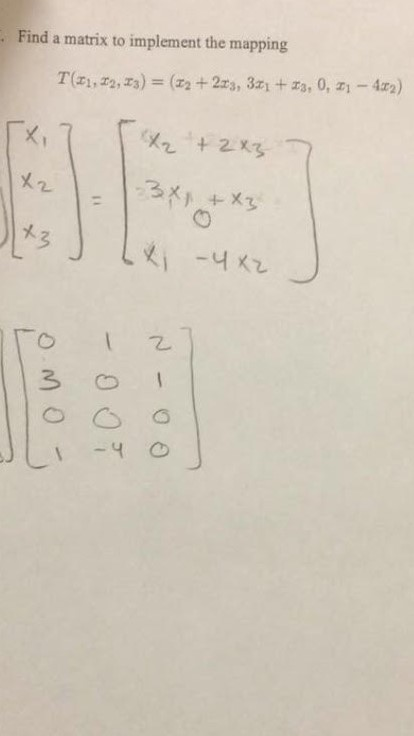 . Find a matrix to implement the mapping
T(x₁, x₂, x₃) = (x₂ + 2x₃, 3x₁ + x₃, 0, x₁ − 4x₂)
x₁ x₂ + 2x₃
x₂ = 3x₁ + x₃
0
x₃ x₁ -4x₂
0 1 2
3 0 1
0 0 0
1 -4 0